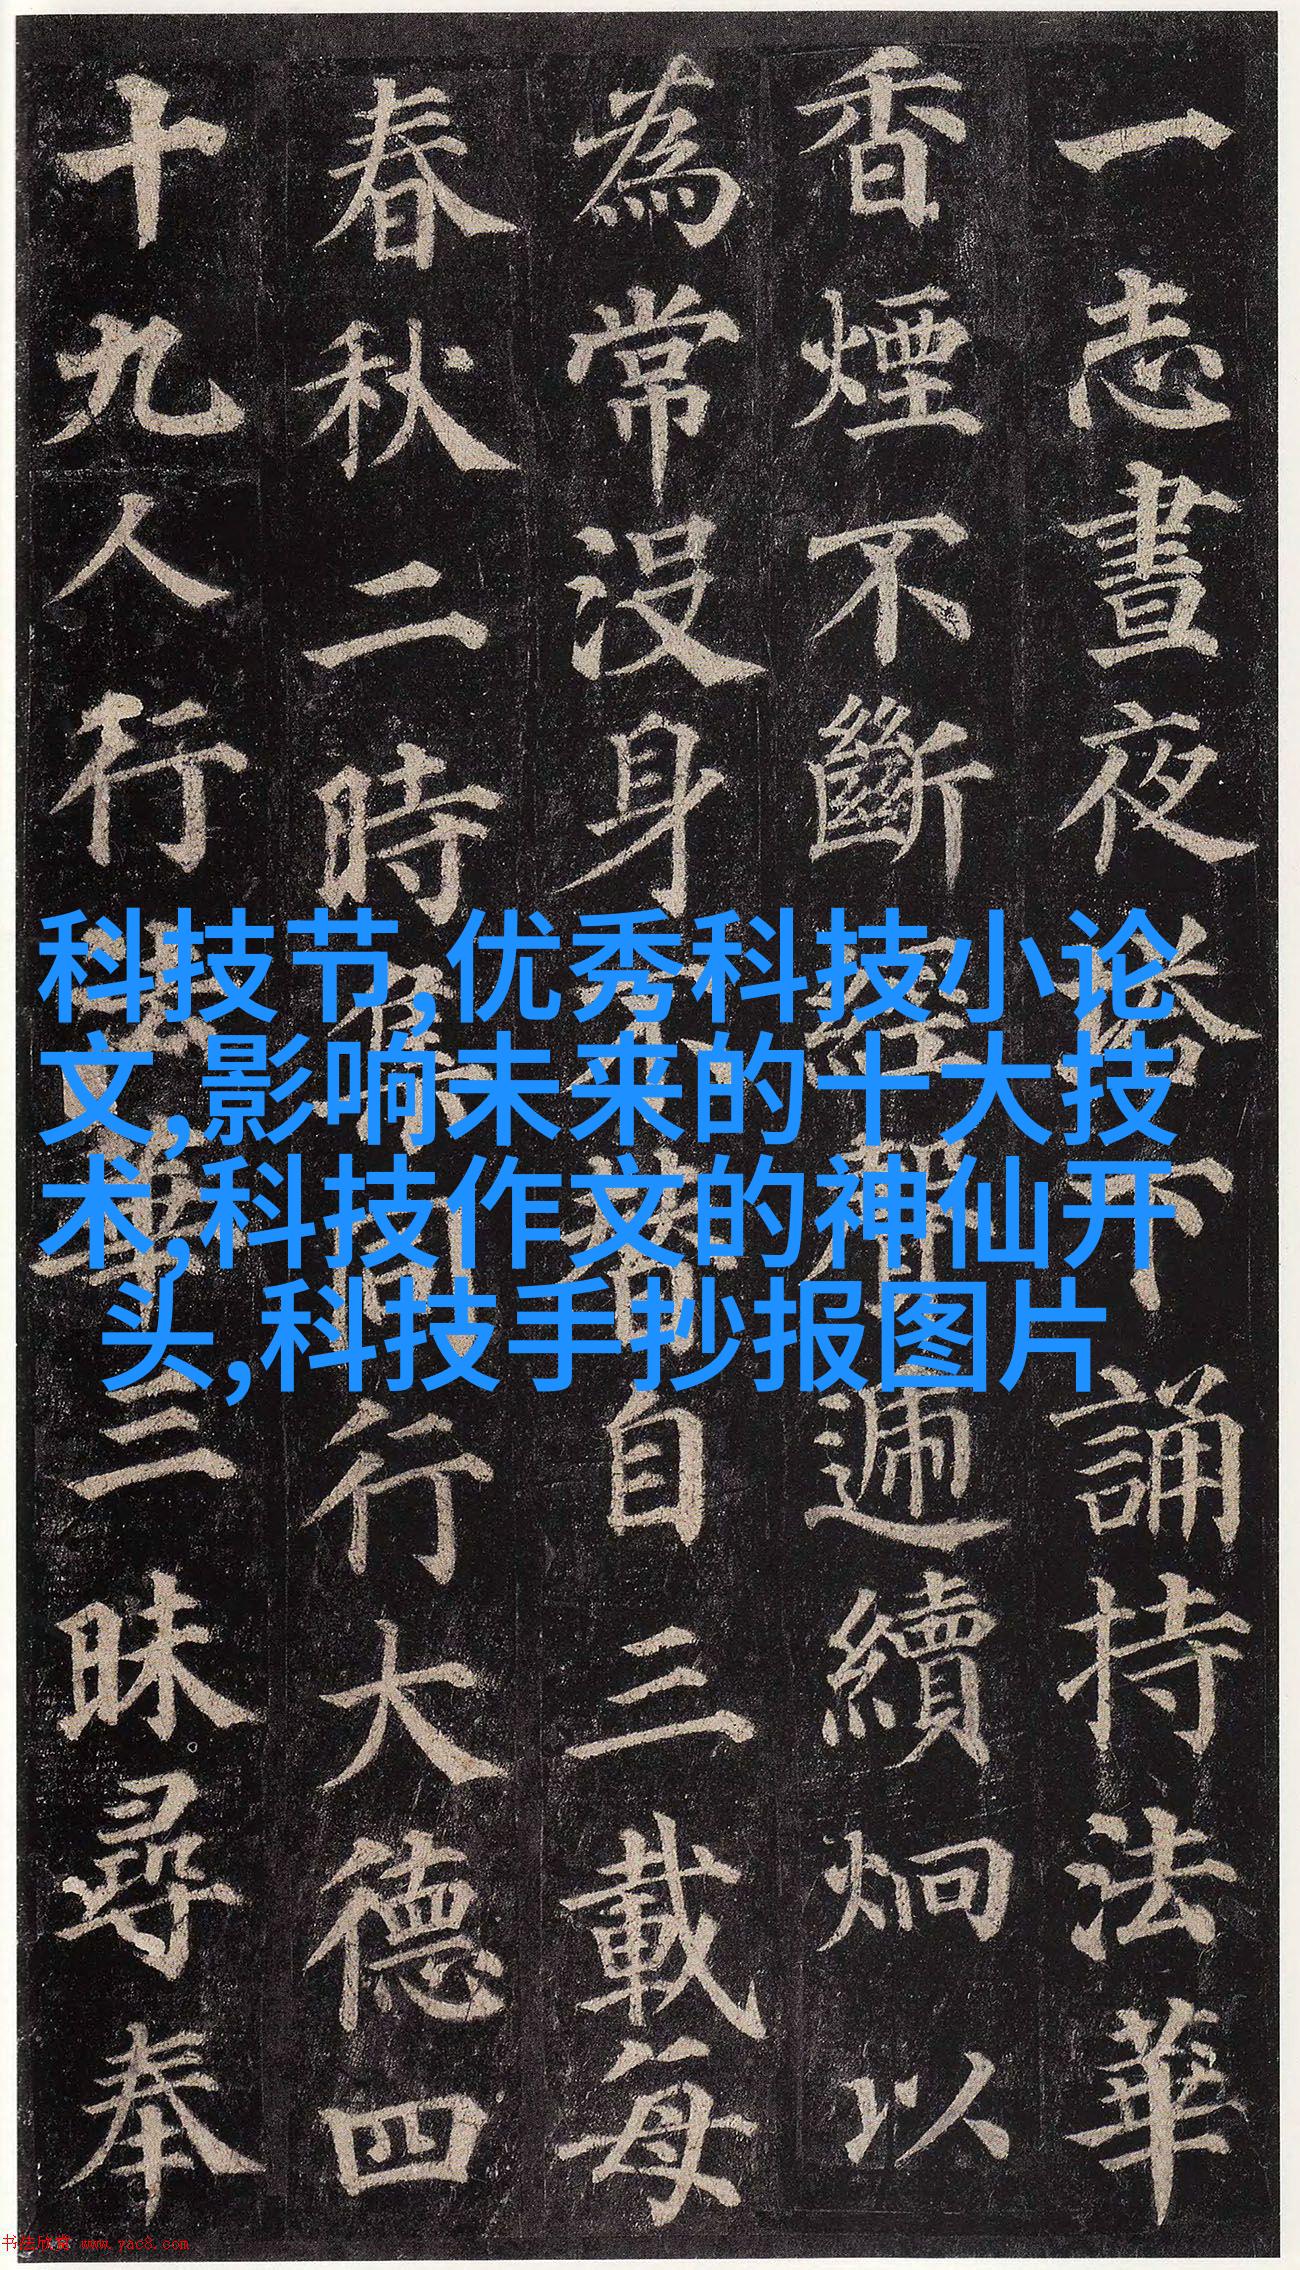 一志晝夜塔下誦持法華
香煙不斷經聲遞續炯以
為常沒身不替自三載每
春秋二時集同行大德四
十九人行法華三昧尋奉
科技节,优秀科技小论
文,影响未来的十大技
术,科技作文的神仙开
头,科技手抄报图片
书法欣赏 www.yac8.com